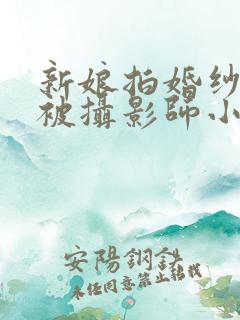 新娘拍婚纱
被攝影師小
安陽鋼鐵
未经同意禁止转载